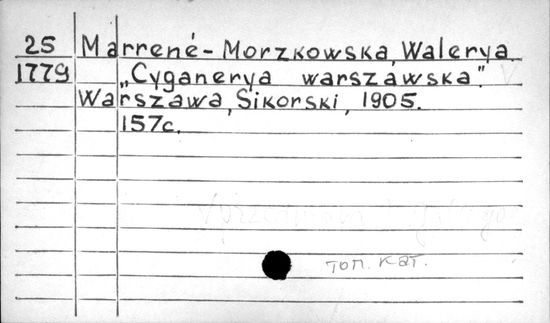 25 Marrené-Morzkowska, Walerya.
1779 „Cyganerya warszawska".
Warszawa, Sikorski, 1905.
157c.
топ. кат.